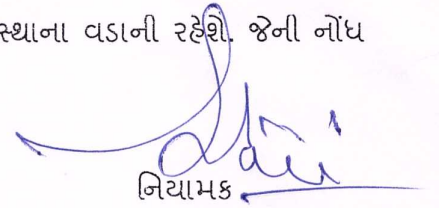 સ્થાના વડાની રહેશે. જેની નોંધ
નિયામક